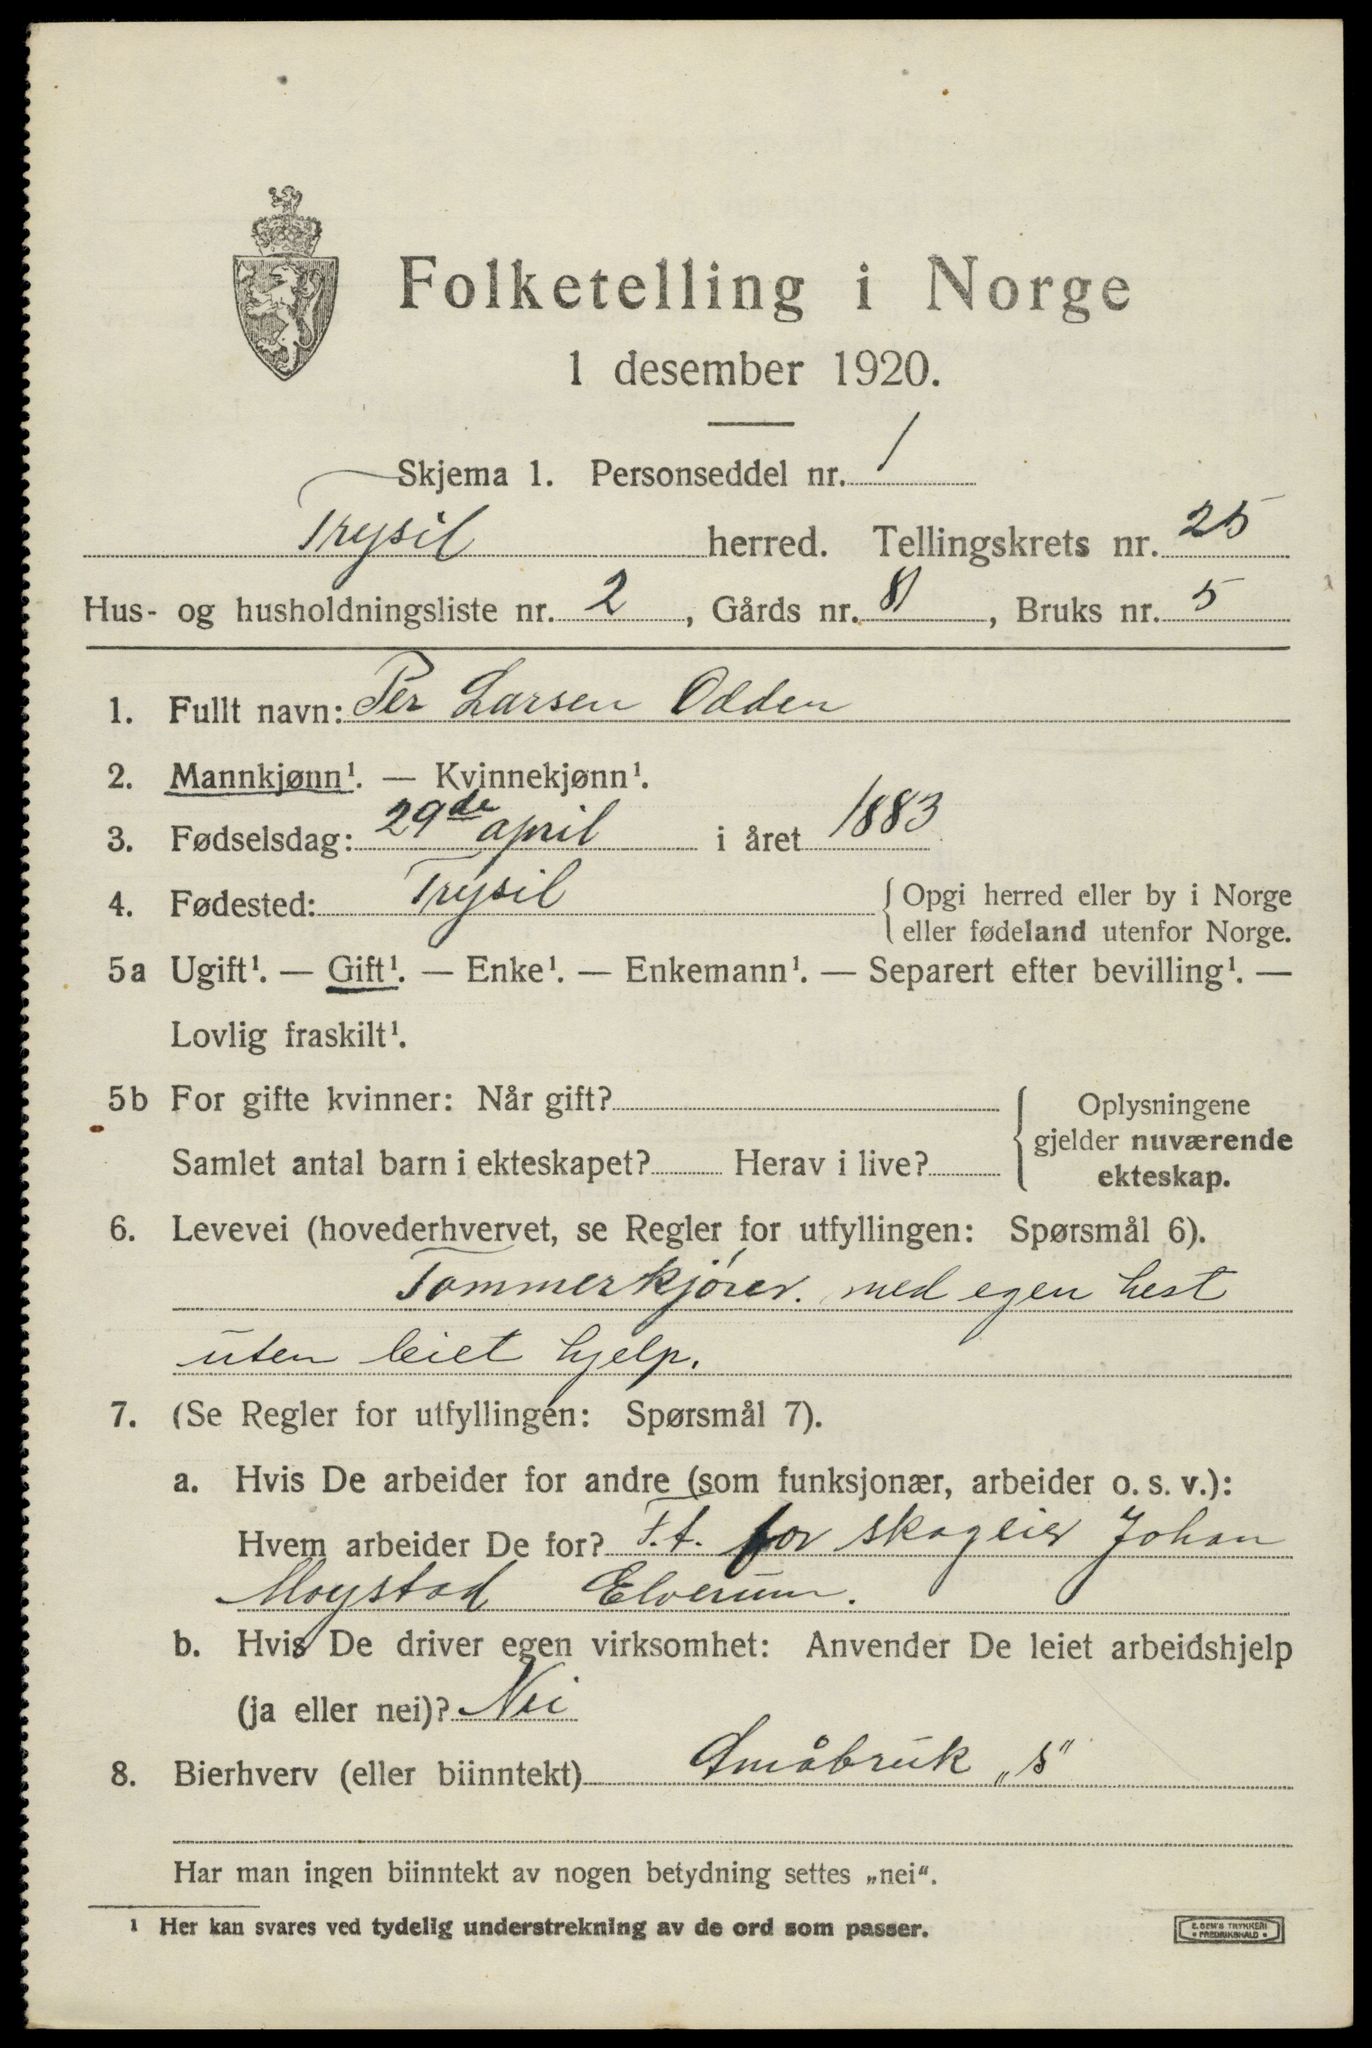 Folketelling i Norge
1 desember 1920.
Skjema 1. Personseddel nr. 1
Trysil herred. Tellingskrets nr. 25
Hus- og husholdningsliste nr. 2, Gårds nr. 81, Bruks nr. 5
1. Fullt navn: Per Larsen Odden
2. Mannkjønn¹. — Kvinnekjønn¹.
3. Fødselsdag: 29de april i året 1883
4. Fødested: Trysil {Opgi herred eller by i Norge
eller fødeland utenfor Norge.
5a Ugift¹. — Gift¹. — Enke¹. — Enkemann¹. — Separert efter bevilling¹. —
Lovlig fraskilt¹.
5b For gifte kvinner: Når gift?
Samlet antal barn i ekteskapet? Herav i live?
Oplysningene
gjelder nuværende
ekteskap.
6. Levevei (hovederhvervet, se Regler for utfyllingen: Spørsmål 6).
Tømmerkjører. med egen hest
uten leiet hjelp.
7. (Se Regler for utfyllingen: Spørsmål 7).
a. Hvis De arbeider for andre (som funksjonær, arbeider o. s. v.):
Hvem arbeider De for? F.t. for skogeier Johan
Moystad Elverum.
b. Hvis De driver egen virksomhet: Anvender De leiet arbeidshjelp
(ja eller nei)? Nei
8. Bierhverv (eller biinntekt) Småbruk „s"
Har man ingen biinntekt av nogen betydning settes „nei“.
¹ Her kan svares ved tydelig understrekning av de ord som passer.
E. SEM'S TRYKKERI
• FREDRIKSHALD •